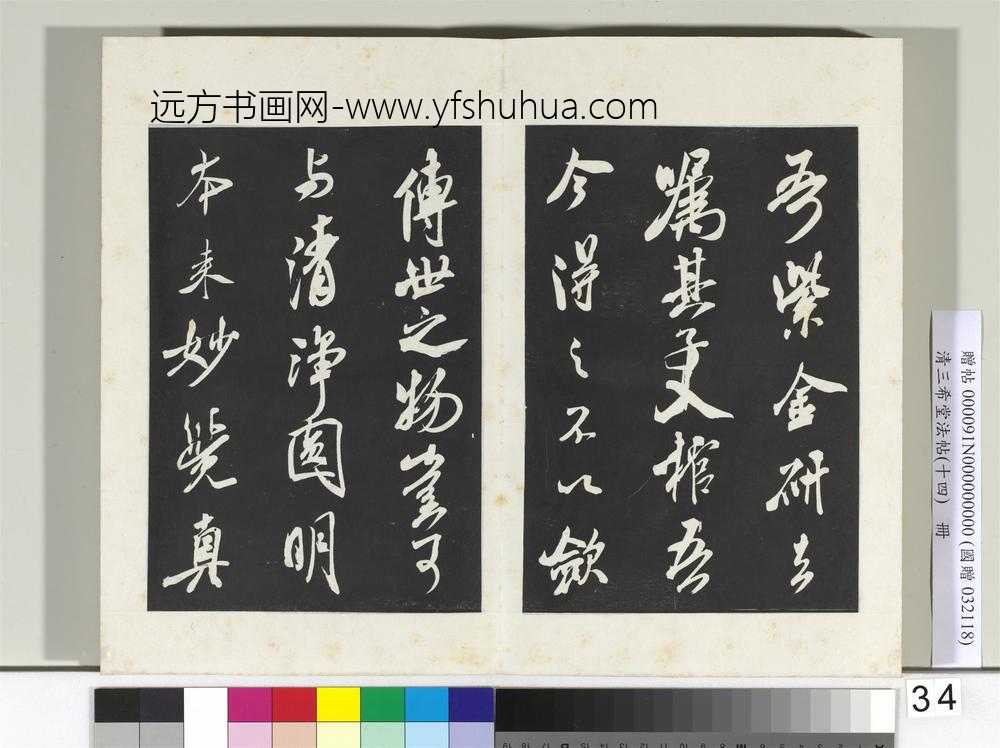 远方书画网-www.yfshuhua.com
吾紫金研去
嘱其子入棺吾
今得之不以敛
傳世之物豈可
与清淨圓明
本来妙覺真
贈帖 000091N000000000 (國贈 032118)
清三希堂法帖(十四) 冊
34